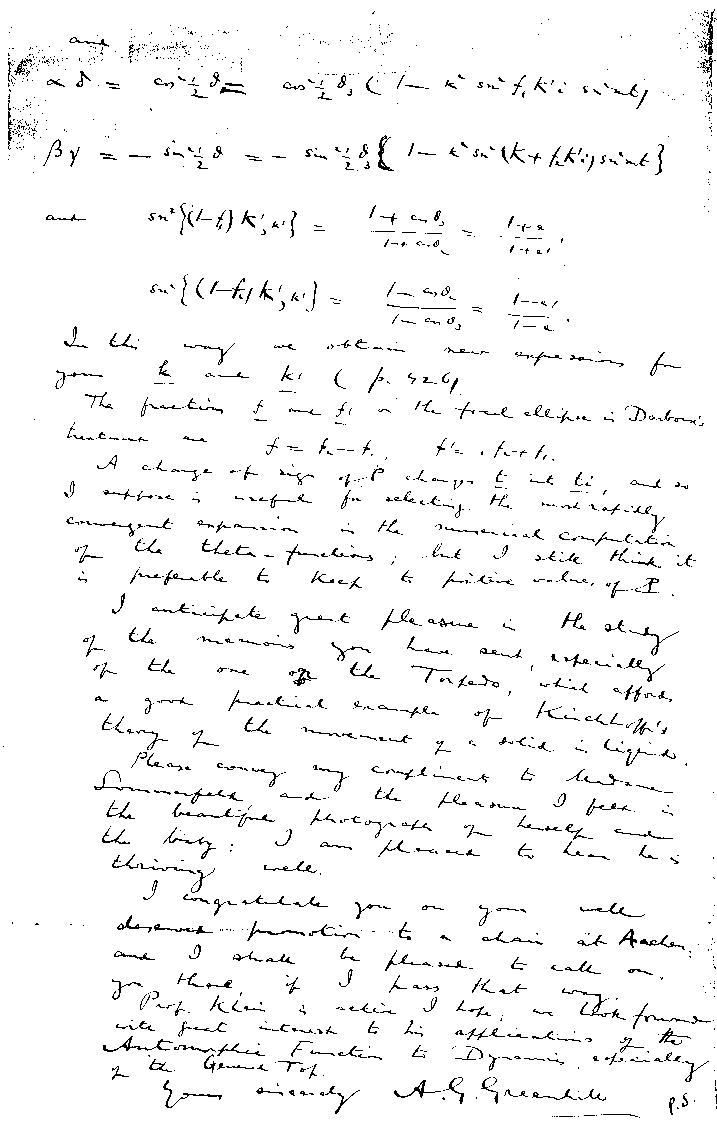 and
αδ = cos² ½ϑ = cos² ½ϑ₃ (1 − κ² sn² f₁K'i sn² mt)
βγ = − sin² ½ϑ = − sin² ½ϑ₃ {1 − κ² sn² (K + f₂K'i) sn² mt}
and sn² {(1−f₁) K', κ'} = (1 + cos ϑ₃)/(1 + cos ϑ₂) = (1+e)/(1+e').
sn² {(1−f₂) K', κ'} = (1 − cos ϑ₂)/(1 − cos ϑ₃) = (1−e')/(1−e).
In this way we obtain new expressions for
your k and k₁ (p. 426).
The fractions f and f₁ on the focal ellipse in Darboux's
treatment are f = f₂ − f₁, f' = f₂ + f₁.
A change of sign of P changes t into ti, and so
I suppose is useful for selecting the most rapidly
convergent expansion in the numerical computation
of the theta-functions; but I still think it
is preferable to keep to positive values of P.
I anticipate great pleasure in the study
of the memoirs you have sent, especially
of the one of the Torpedo, which affords
a good practical example of Kirchhoff's
theory of the movement of a solid in liquid.
Please convey my compliments to Madame
Sommerfeld, and the pleasure I felt in
the beautiful photograph of herself and
the baby; I am pleased to hear he is
thriving well.
I congratulate you on your well
deserved promotion to a chair at Aachen,
and I shall be pleased to call on
you there, if I pass that way.
Prof. Klein is active I hope; we look forward
with great interest to his applications of the
Automorphic Function to Dynamics, especially
of the General Top.
Yours sincerely A. G. Greenhill
P.S.